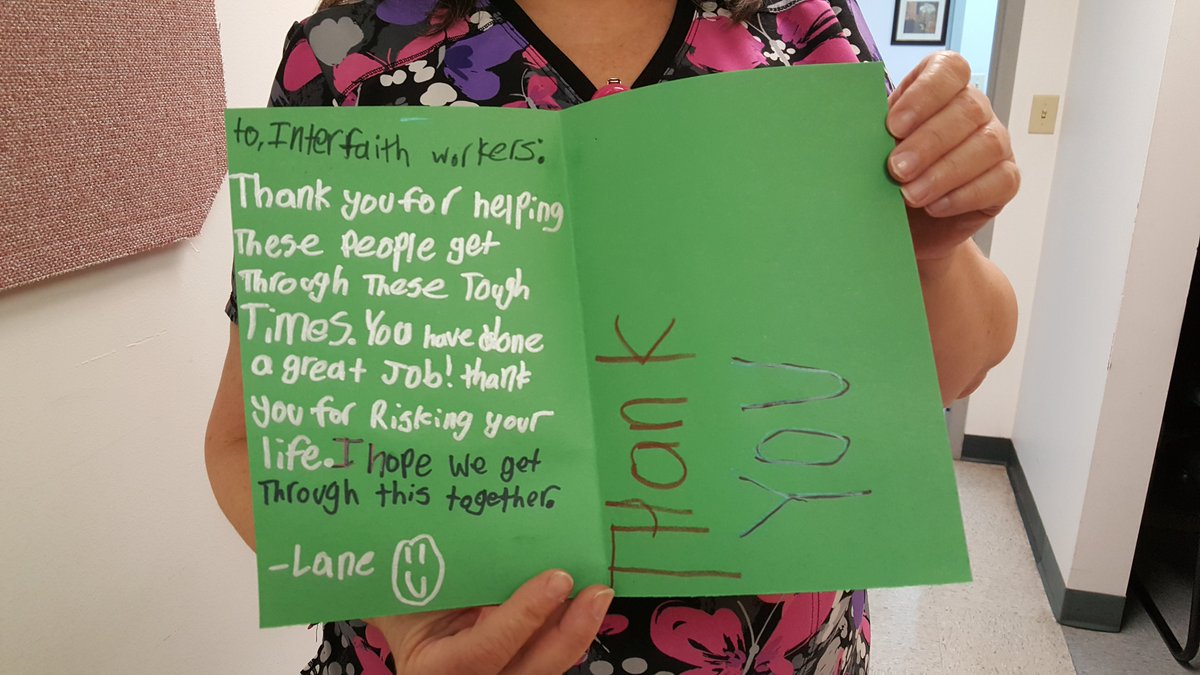 to, Interfaith workers:
Thank you for helping
These People get
Through These Tough
Times. You have done
a great Job! thank
you for Risking your
life. I hope we get
Through this together.
-Lane
Thank
You